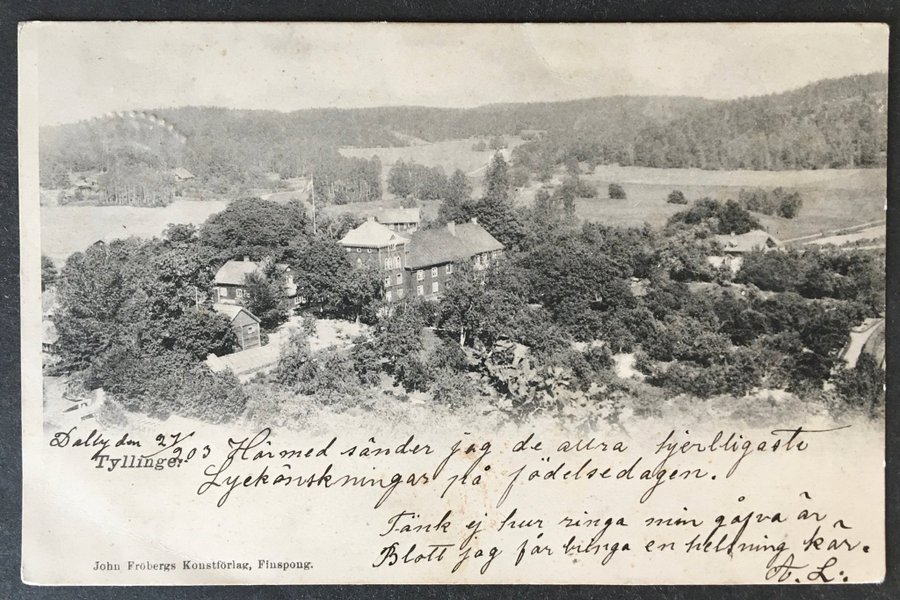 Dalby den 2/2 903 Härmed sänder jag de allra hjerlligaste
Tyllinge.
Lyckönskningar på födelsedagen.
Tänk ej hur ringa min gåfva är
Blott jag får bringa en helsning kär.
A. L.
John Fröbergs Konstförlag, Finspong.